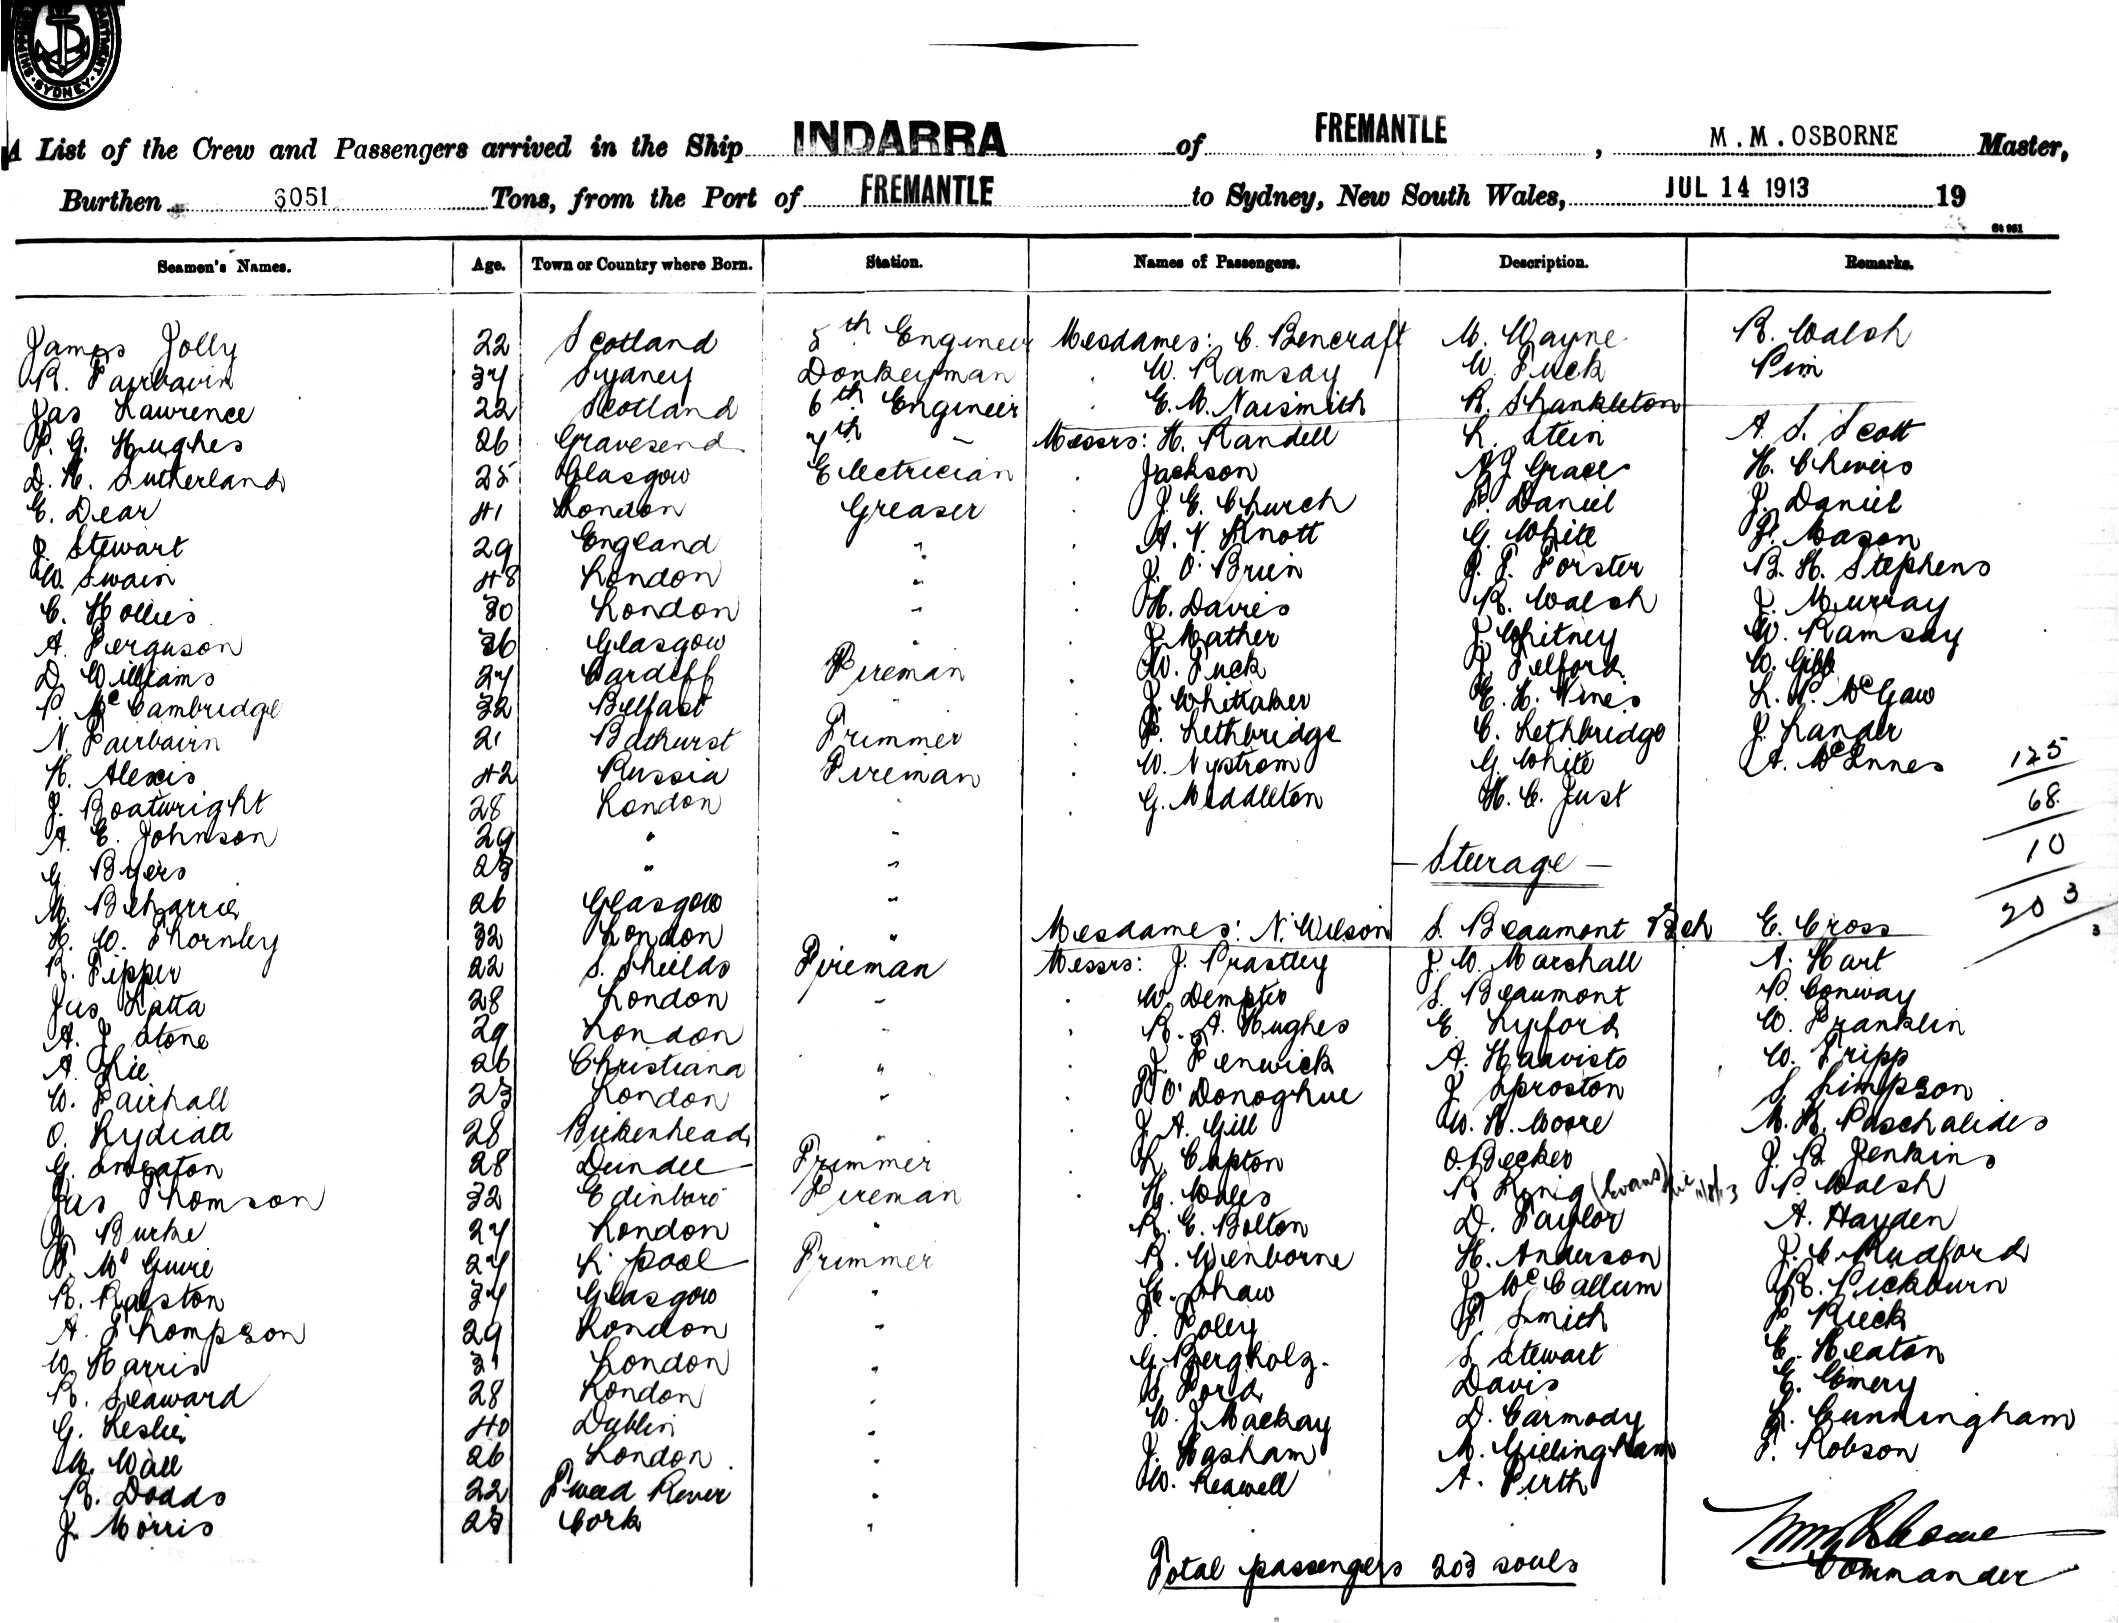 SHIPPING DEPARTMENT SYDNEY
A List of the Crew and Passengers arrived in the Ship INDARRA of FREMANTLE, M. M. OSBORNE Master,
Burthen 6051 Tons, from the Port of FREMANTLE to Sydney, New South Wales, JUL 14 1913 19
Seamen's Names. Age. Town or Country where Born. Station. Names of Passengers. Description. Remarks.
James Jolly 22 Scotland 5th Engineer Mesdames: C. Bencraft M. Wayne R. Walsh
R. Fairbairn 37 Sydney Donkeyman " W. Ramsay W. Tuck Pim
Jas Lawrence 22 Scotland 6th Engineer " E. M. Naismith R. Shankleton
P. G. Hughes 26 Gravesend 7th - Messrs: H. Randell L. Stein A. S. Scott
D. H. Sutherland 25 Glasgow Electrician " Jackson Grace H. Cheveis
E. Dear 41 London Greaser " J. E. Church P. Daniel J. Daniel
J. Stewart 29 England " " A. V. Knott G. White F. Mason
W. Swain 48 London " " J. O'Brien J. T. Forster B. H. Stephens
C. Hollies 30 London " " H. Davies R. Walsh J. Murray
A. Ferguson 36 Glasgow " " J. Mather J. Whitney W. Ramsay
D. Williams 27 Cardiff Fireman " W. Tuck J. Telford W. Gibb
P. McCambridge 32 Belfast " " J. Whittaker E. H. Vines L. P. McGaw
N. Fairbairn 21 Bathurst Trimmer " F. Lethbridge C. Lethbridge J. Lander
H. Alexis 42 Russia Fireman " W. Nystrom G. White A. McInnes 125
J. Boatwright 28 London " " G. Middleton H. C. Just 68
A. E. Johnson 29 " "
G. Byers 23 " " - Steerage - 10
M. Beharrie 26 Glasgow " 203
H. W. Thornley 32 London " Mesdames: N. Wilson S. Beaumont & Ch E. Cross
R. Tipper 22 S. Shields Fireman Messrs: J. Prastley J. W. Marshall A. Hart
Jas Latta 28 London " " W. Dempter S. Beaumont P. Conway
A. J. Stone 29 London " " R. A. Hughes E. Lyford W. Franklin
A. Lie 26 Christiana " " J. Fenwick A. Haavisto W. Tripp
W. Fairhall 23 London " " T O'Donoghue J Sproston S Simpson
O. Lydiatt 28 Birkenhead " " J. A. Gill W. H. Moore M. K. Paschalides
G. Smeaton 28 Dundee Trimmer " L. Capton O. Becker J. B. Jenkins
Jas Thomson 32 Edinboro Fireman " H. Wales R König (Evans) P. Walsh
J. Burke 27 London " R. E. Bolton D. Taylor A. Hayden
T. McGuire 27 L'pool Trimmer R. Wenborne H. Anderson J. C. Rudford
R. Ralston 37 Glasgow " H. Shaw J McCallum R. Pickburn
A. Thompson 29 London " T. Foley F Smith P Rieck
W. Harris 31 London " G. Bergholz. S. Stewart E. Heaton
R. Seaward 28 London " S. Ford Davis E. Emery
G. Leslie 40 Dublin " W. J. Mackay D. Carmody L. Cunningham
M. Wall 26 London " J. Hasham M. Gillingham T. Robson
R. Dodds 22 Tweed River " W. Reawell A. Firth
J. Morris 23 Cork "
Total passengers 203 souls
Commander